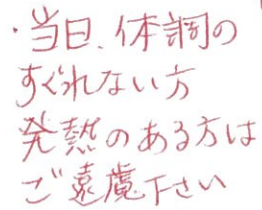 ・当日、体調の
すぐれない方
発熱のある方は
ご遠慮下さい